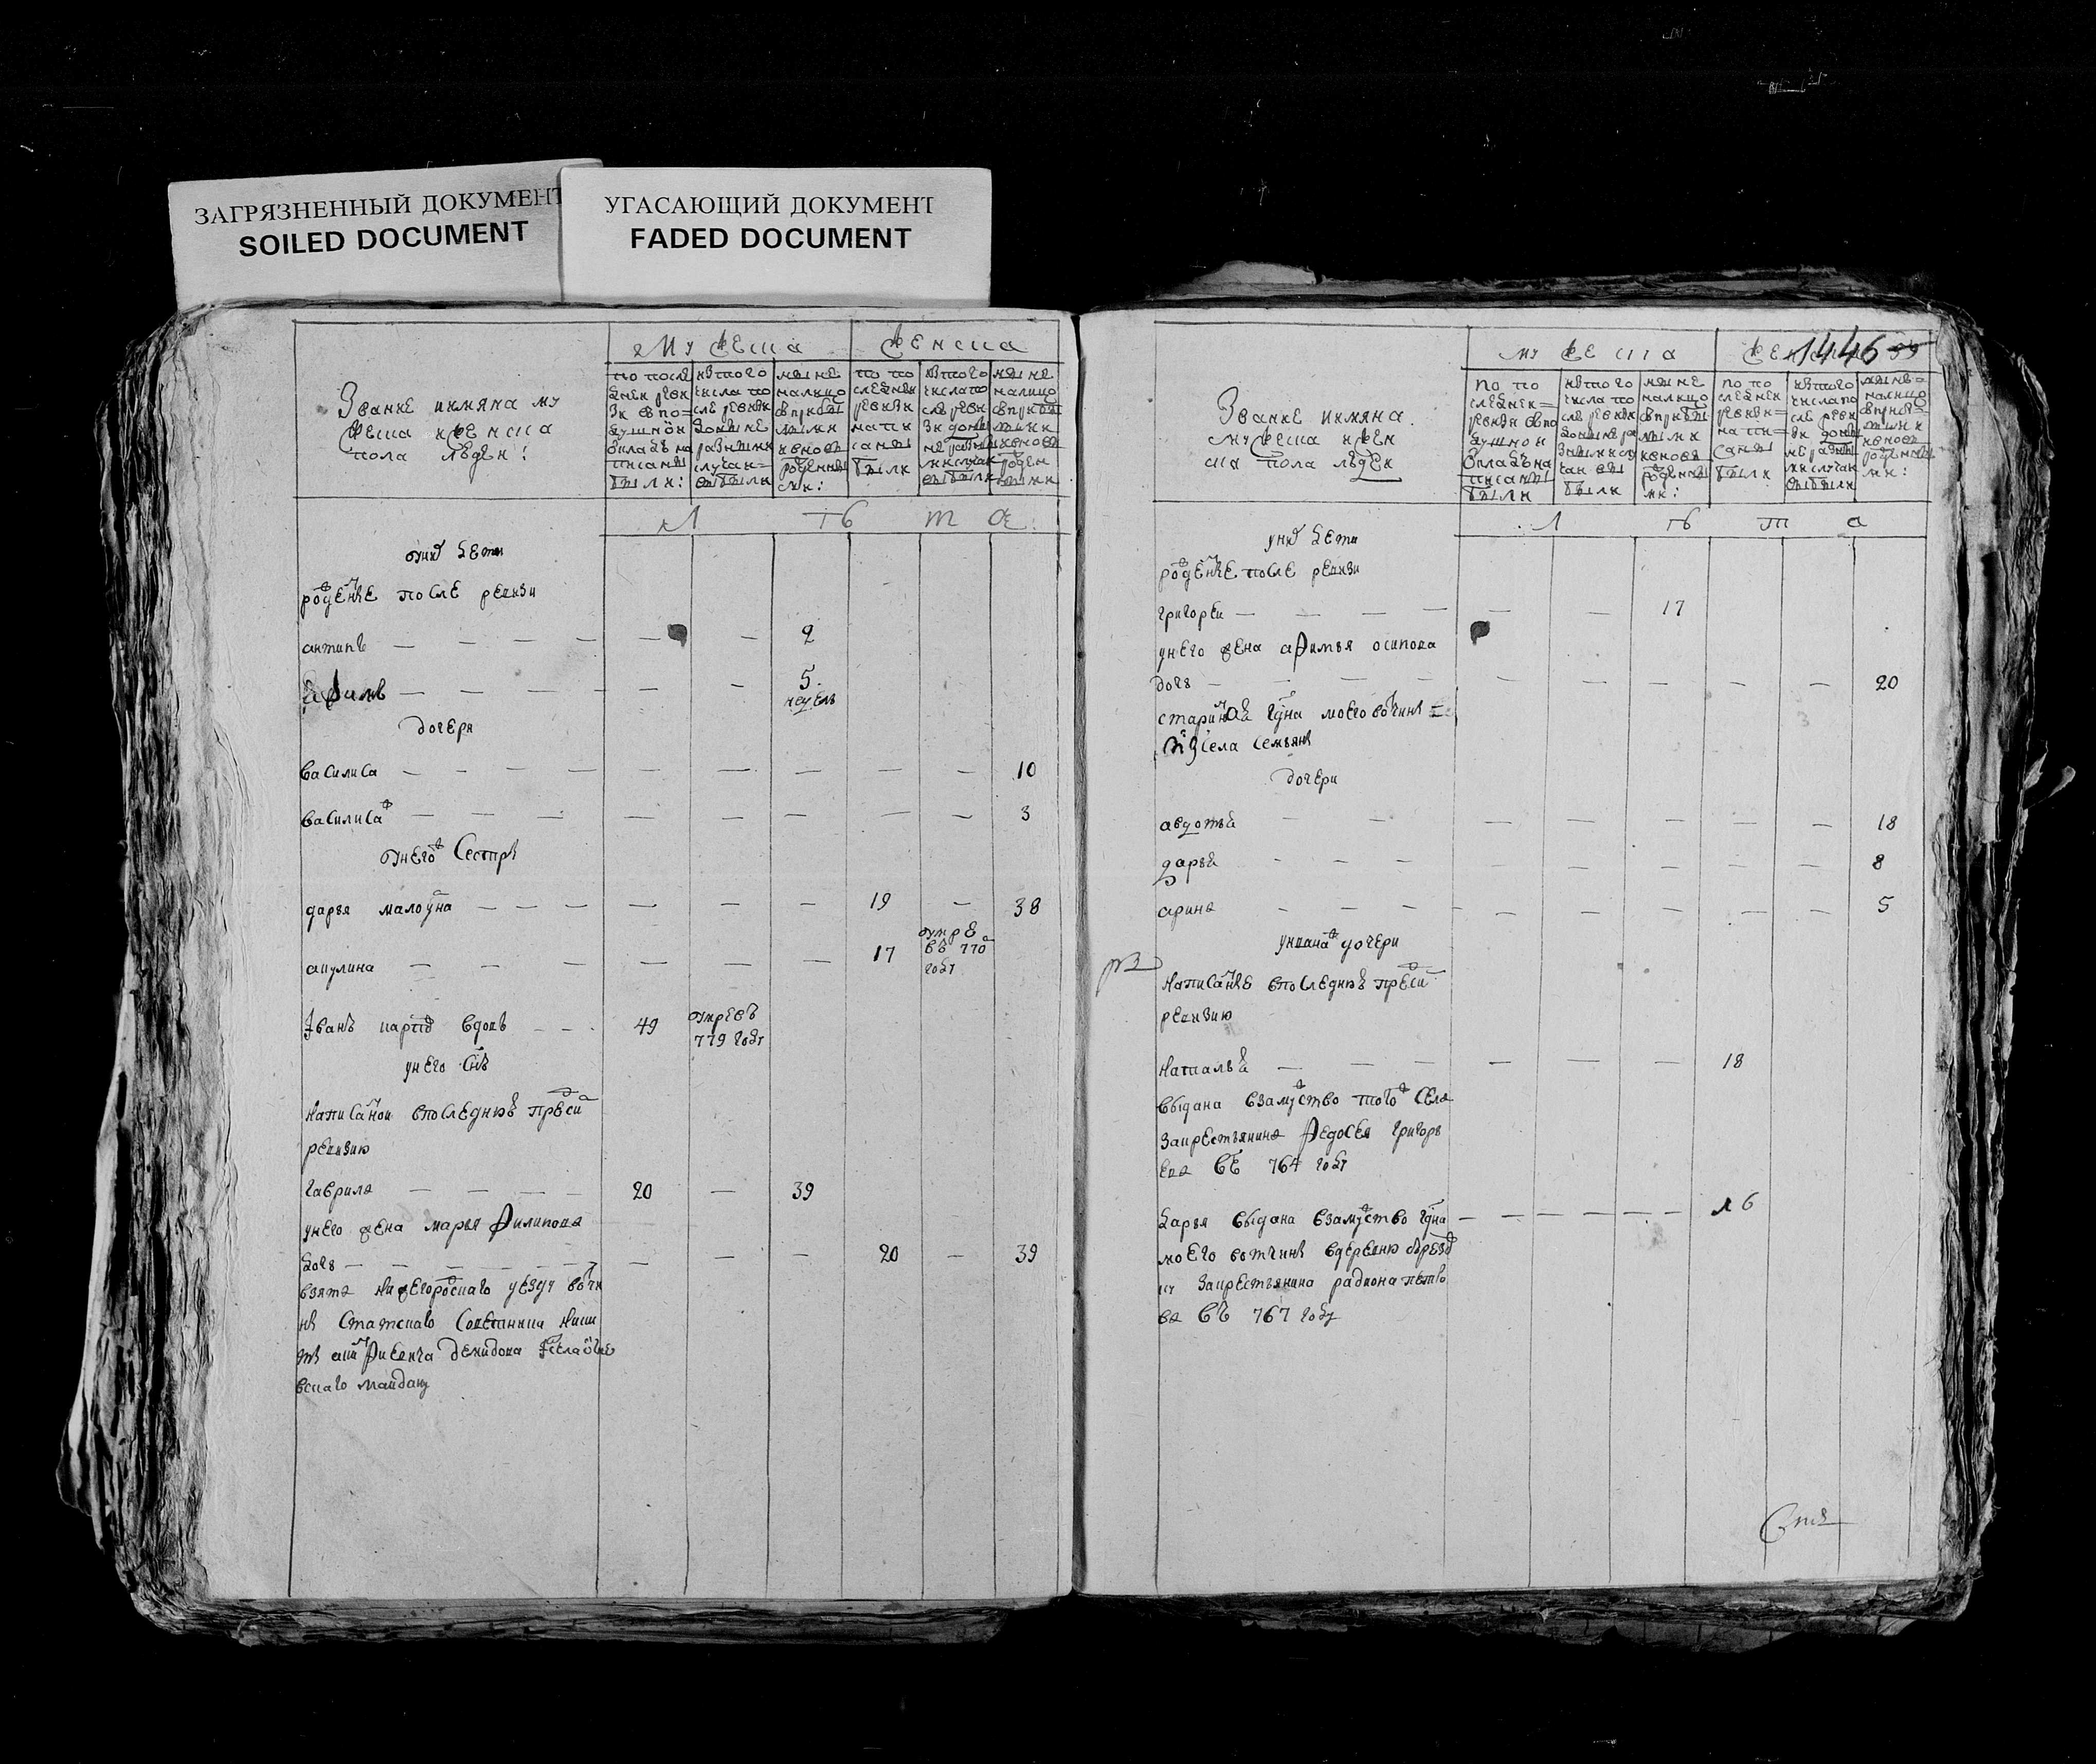 ЗАГРЯЗНЕННЫЙ ДОКУМЕНТ
SOILED DOCUMENT
УГАСАЮЩИЙ ДОКУМЕНТ
FADED DOCUMENT
Звание и имяна му
жеска и женска
пола людеи:
Мужеска
женска
по после
дней реви
зи в по=
душной
оклад на
писаны
были:
ис того
числа по
сле ревизи
до ныне
разными
случаи=
выбыли
ныне
налицо
с прибы
лыми
и вновь
рожденны
ми:
по по
следней
ревизи
напи
саны
были
ис того
числа по
сле реви
зи до ны
не разны
ми случаи
выбыли
ныне
налицо
с прибы
лыми
и вновь
рожден
ными
Л ѣ т а
у них дети
рожденые после ревизи
антипъ 2
ефимъ 5
неделъ
дочери
василиса 10
василиса ж 3
у него ж сестры
дарья малоумна 19 38
акулина 17 умре
въ 770 м
году
Иванъ карпов вдовъ 49 умре въ
779 году
у него сынъ
написанои в последнюю пред сим
ревизию
гаврила 20 39
у него жена марья филипова
дочь 20 39
взята нижегородскаго уезду вотчи
ны статскаго советника ники
ты акинфиевича демидова
вскаго маидану
1446
Звание и имяна
мужеска и жен
ска пола людеи
мужеска
женска
по по
следнеи=
ревизи в по
душнои
окладъ на
писаны
были
ис того
числа по
сле ревизи
до ныне ра
зными слу
чаи вы
были
ныне
налицо
с прибы
лыми
и вновь
рожденны
ми:
по по
следнеи
ревизи=
напи=
саны
были
ис того
числа по
сле реви
зи до ны
не разны
ми случаи
выбыли
ныне=
налицо
с прибы=
лыми
и вновь
рожденны
ми:
Л ѣ т а
у них дети
рожденые после ревизи
григореи 17
у него жена афимья осипова
дочь 20
стариннаи гдна моего вотчины
из села семьяны
дочери
авдотья 18
дарья 8
арина 5
у ивана ж дочери
написаные в последнюю пред сим
ревизию
наталья 18
выдана взамужство того ж села
за крестьянина федосея григорь
ева въ 764 году
дарья выдана взамужство гдна 16
моего вотчины в деревню
за крестьянина радиона
ва въ 767 году